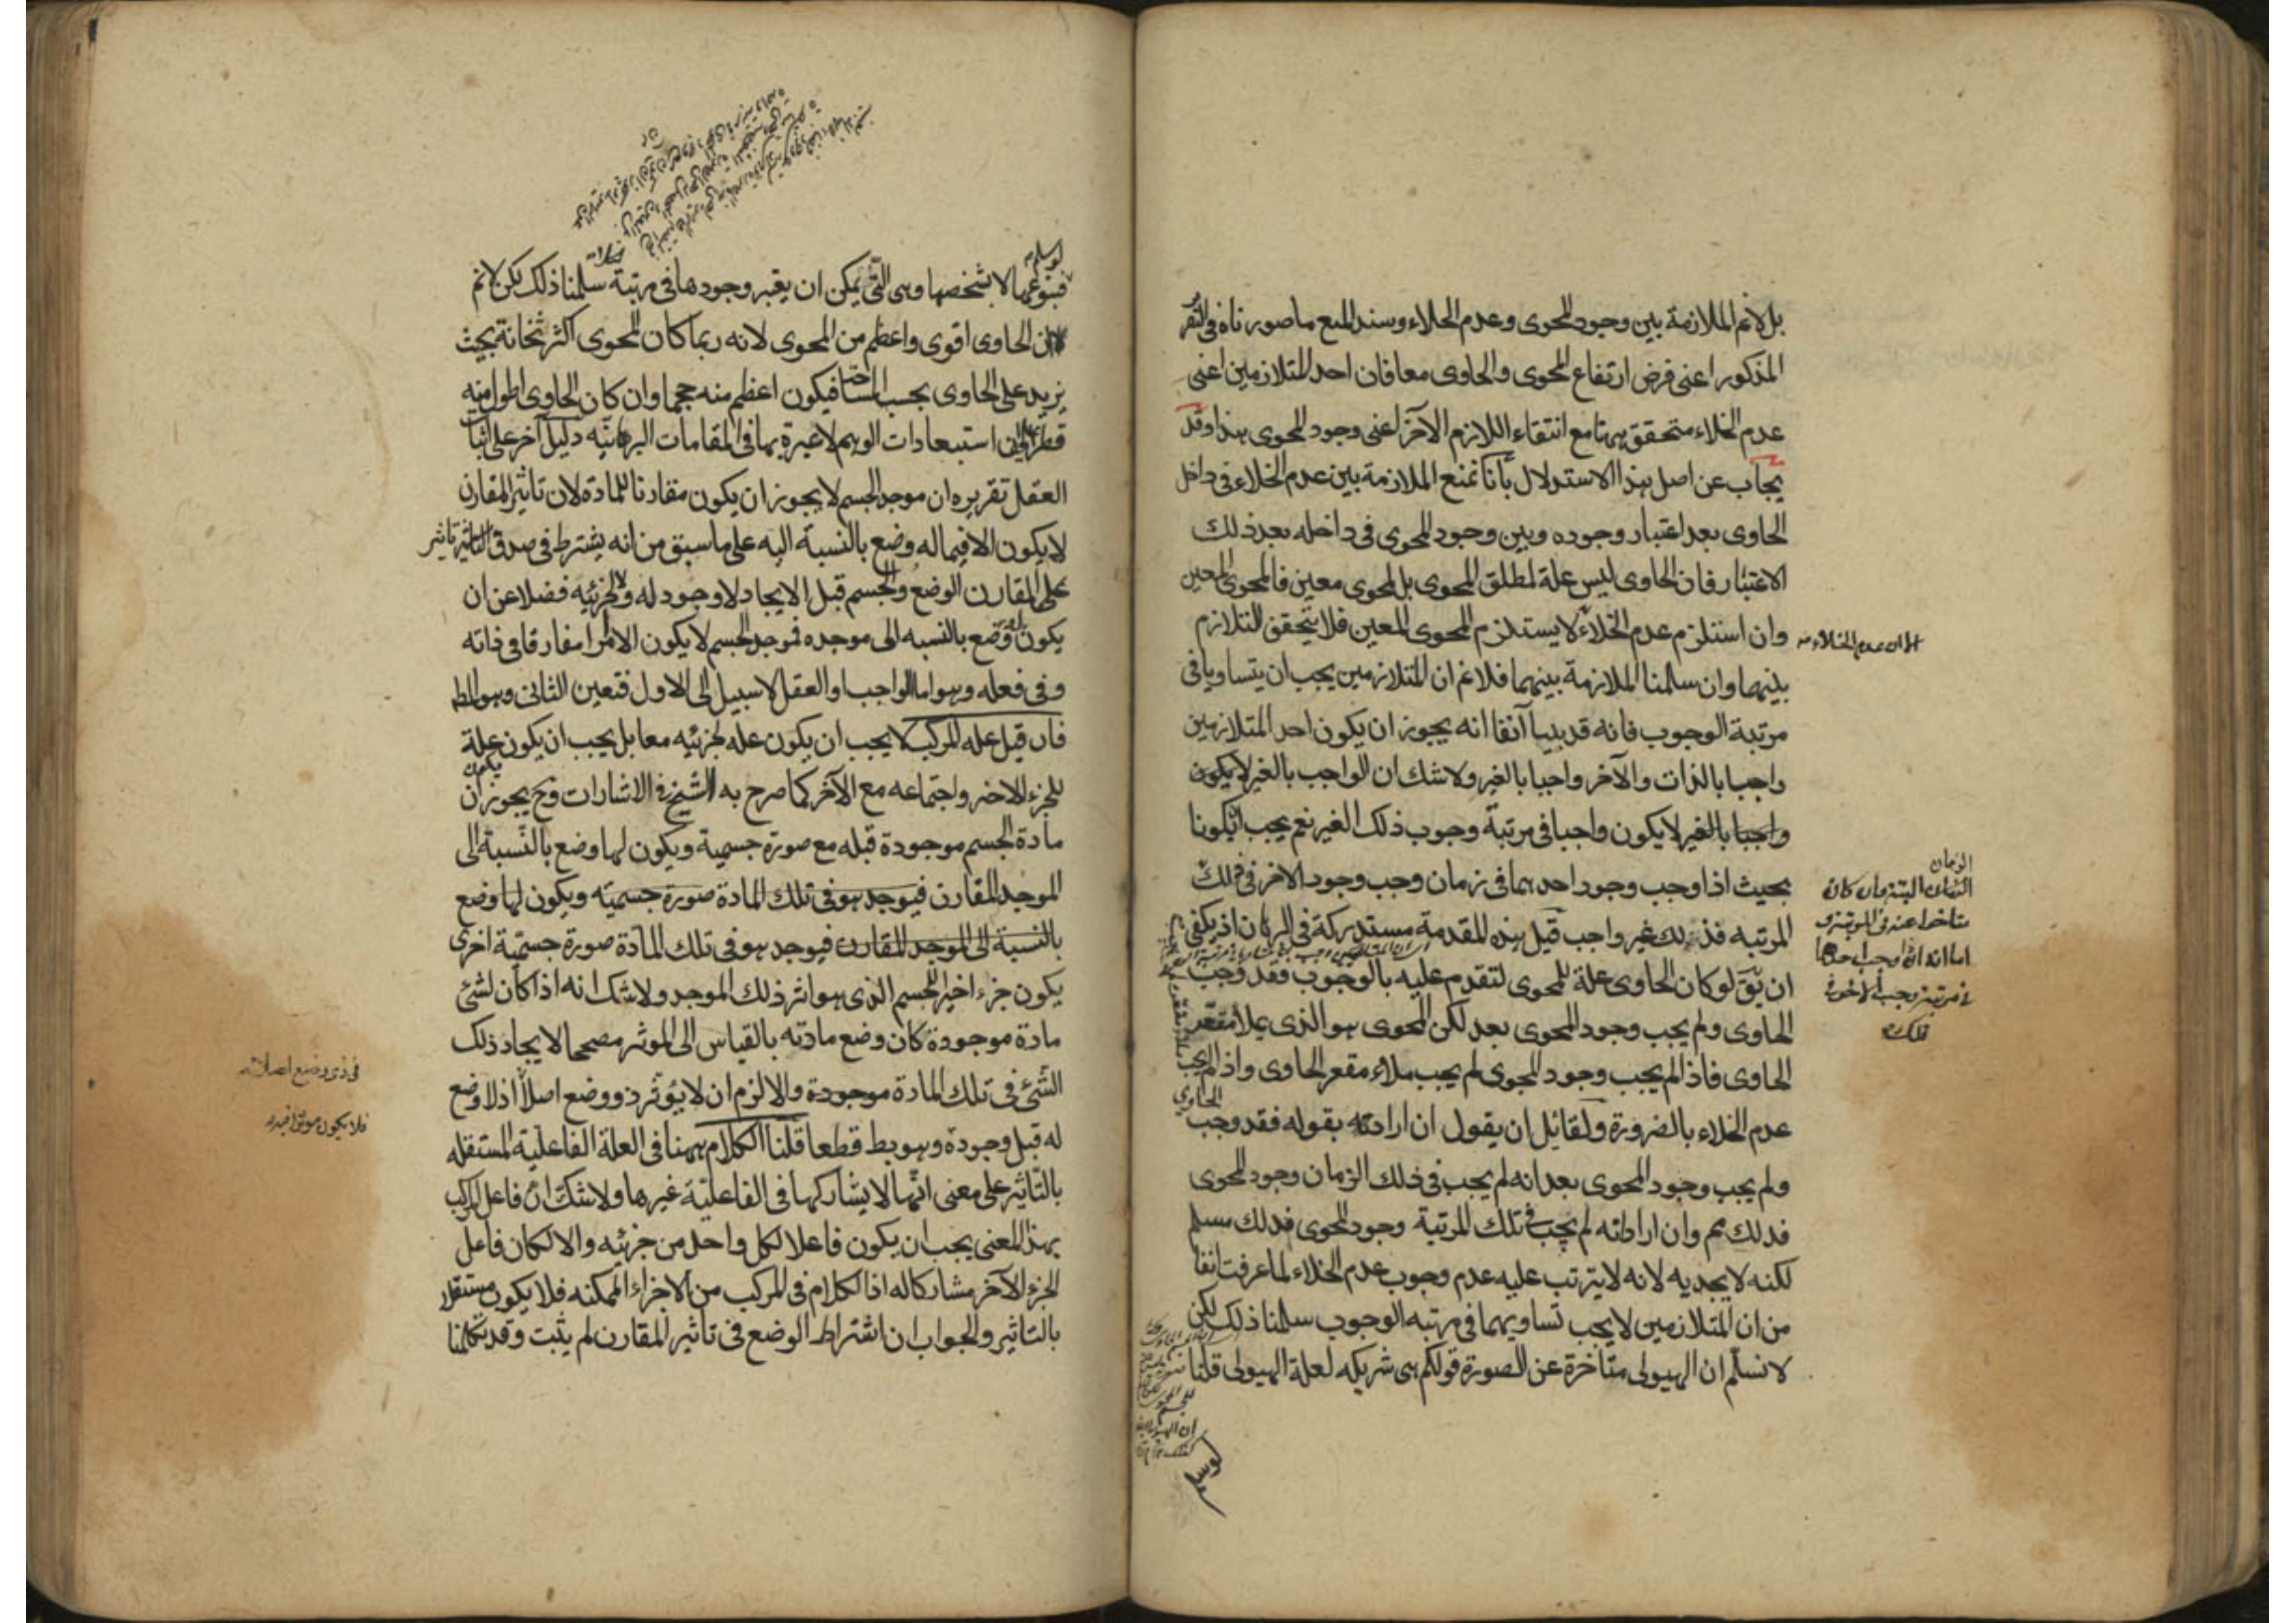 بل لانم الملازمة بين وجود المحوى وعدم الخلاء وسند المنع ما صورناه فى التقر
المذكور اعنى فرض ارتفاع المحوى والحاوى معا فان احد المتلازمين اعنى
عدم الخلاء متحقق ههنا مع انتفاء اللازم الآخر اعنى وجود المحوى هذا وقد
يجاب عن اصل هذا الاستدلال بأنا نمنع الملازمة بين عدم الخلاء فى داخل
الحاوى بعد اعتبار وجوده وبين وجود المحوى فى داخله بعد ذلك
الاعتبار فان الحاوى ليس علة لمطلق المحوى بل لمحوى معين فالمحوى المعين
وان استلزم عدم الخلاء لا يستلزم المحوى المعين فلا يتحقق التلازم
الا ان عدم الخلاء
بينهما وان سلمنا الملازمة بينهما فلانم ان المتلازمين يجب ان يتساويا فى
مرتبة الوجوب فانه قد بينا آنفا انه يجوز ان يكون احد المتلازمين
واجبا بالذات والآخر واجبا بالغير ولا شك ان الواجب بالغير لا يكون
واجبا بالغير لا يكون واجبا فى مرتبة وجوب ذلك الغير نعم يجب ان يكونا
بحيث اذا وجب وجود احدهما فى زمان وجب وجود الاخر فى ذلك
الزمان
البتة وان كان
متاخرا عنه فى المرتبة و
اما انه اذا وجب احدهما
فى مرتبة وجب الاخر فى
تلك
المرتبه فذلك غير واجب قيل هذه المقدمة مستدركة فى البرهان اذ يكفى
ان يق لو كان الحاوى علة للمحوى لتقدم عليه بالوجوب فقد وجب
الحاوى ولم يجب وجود المحوى بعد لكن المحوى هو الذى يملأ مقعر
الحاوى فاذا لم يجب وجود المحوى لم يجب ملاء مقعر الحاوى واذا لم يجب
عدم الخلاء بالضرورة ولقائل ان يقول ان اراد به بقوله فقد وجب
الحاوى
ولم يجب وجود المحوى بعد انه لم يجب فى ذلك الزمان وجود المحوى
فذلك مم وان اراد انه لم يجب فى تلك المرتبة وجود المحوى فذلك مسلم
لكنه لا يجديه لانه لا يترتب عليه عدم وجوب عدم الخلاء لما عرفت انفا
من ان المتلازمين لا يجب تساويهما فى مرتبه الوجوب سلمنا ذلك لكن
لا نسلم ان الهيولى متاخرة عن الصورة قولكم هى شريكه لعلة الهيولى قلنا
فبنوعها لا بشخصها وهى التى يمكن ان يعتبر وجودها فى مرتبة سلمنا ذلك لكن لانم
ان الحاوى اقوى واعظم من المحوى لانه ربما كان المحوى اكثر ثخانة بحيث
يزيد على الحاوى بحسب المساحة فيكون اعظم منه حجما وان كان الحاوى اطول منه
قطرا استبعادات الوهم لا عبرة بها فى المقامات البرهانيه دليل آخر على اثبات
العقل تقريره ان موجد الجسم لا يجوز ان يكون مقارنا للمادة لان تاثير المقارن
لا يكون الا فيما له وضع بالنسبة اليه على ما سبق من انه يشترط فى صدق تاثير
على المقارن الوضع والجسم قبل الايجاد لا وجود له ولا لجزئيه فضلا عن ان
يكون له وضع بالنسبه الى موجده فموجد الجسم لا يكون الا امرا مفارقا فى ذاته
وفى فعله وهو اما الواجب او العقل لا سبيل الى الاول فتعين الثانى وهو المط
فان قيل علة المركب لا يجب ان يكون عله لجزئيه معا بل يجب ان يكون علة
للجزء الاخير واجتماعه مع الآخر كما صرح به الشيخ فى الاشارات وح يجوز ان
يكون
مادة الجسم موجودة قبله مع صورة جسمية ويكون لها وضع بالنسبة الى
الموجد المقارن فيوجد هو فى تلك المادة صورة جسميه ويكون لها وضع
بالنسبة الى الموجد المقارن فيوجد هو فى تلك المادة صورة جسمية اخرى
يكون جزء اخيرا للجسم الذى هو اثر ذلك الموجد ولا شك انه اذا كان لشئ
مادة موجودة كان وضع مادته بالقياس الى الموثر مصححا لايجاد ذلك
الشئ فى تلك المادة موجودة والا لزم ان لا يؤثر ذو وضع اصلا اذ لا وضع
فى ذى وضع اصلا
فلا يكون موثرا فيه
له قبل وجوده وهو بط قطعا قلنا الكلام ههنا فى العلة الفاعلية المستقله
بالتاثير على معنى انها لا يشاركها فى الفاعلية غيرها ولا شك ان فاعل المركب
بهذا المعنى يجب ان يكون فاعلا لكل واحد من جزئيه والا لكان فاعل
الجزء الآخر مشاركا له اذ الكلام فى المركب من الاجزاء الممكنه فلا يكون مستقلا
بالتاثير والجواب ان اشتراط الوضع فى تاثير المقارن لم يثبت وقد تكلمنا